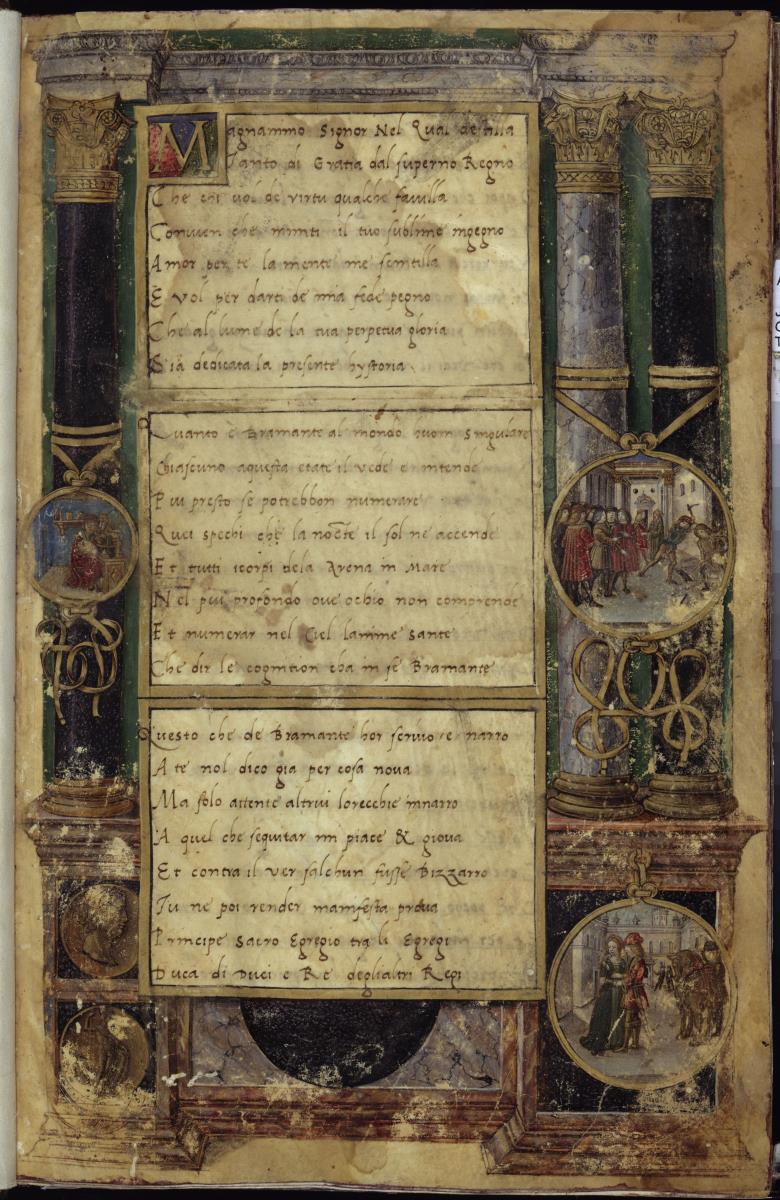 Magnanimo Signor Nel Qual destilla
Tanto di Gratia dal superno Regno
Che chi vol de virtu qualche favilla
Convien che immiti il tuo sublime ingegno
Amor per te la mente me scintilla
E vol per darti de mia fede pegno
Che al lume de la tua perpetua gloria
Sia dedicata la presente hystoria
Quanto è Bramante al mondo huom singulare
Chiascuno aquesta etate il vede e intende
Piu presto se potrebbon numerare
Quei spechi chè la nocte il sol ne accende
Et tutti icorpi dela Arena in Mare
Nel piu profondo ove ochio non comprende
Et numerar nel Ciel lanime sante
Che dir le cognition cha in se Bramante
Questo che de Bramante hor scrivo e narro
A te nol dico gia per cosa nova
Ma solo attente altrui lorecchie innarro
A quel che sequitar mi piace & giova
Et contra il ver salchun fusse Bizzarro
Tu ne poi render manifesta prova
Principe Sacro Egregio tra li Egregi
Duca di Duci e Re deglialtri Regi